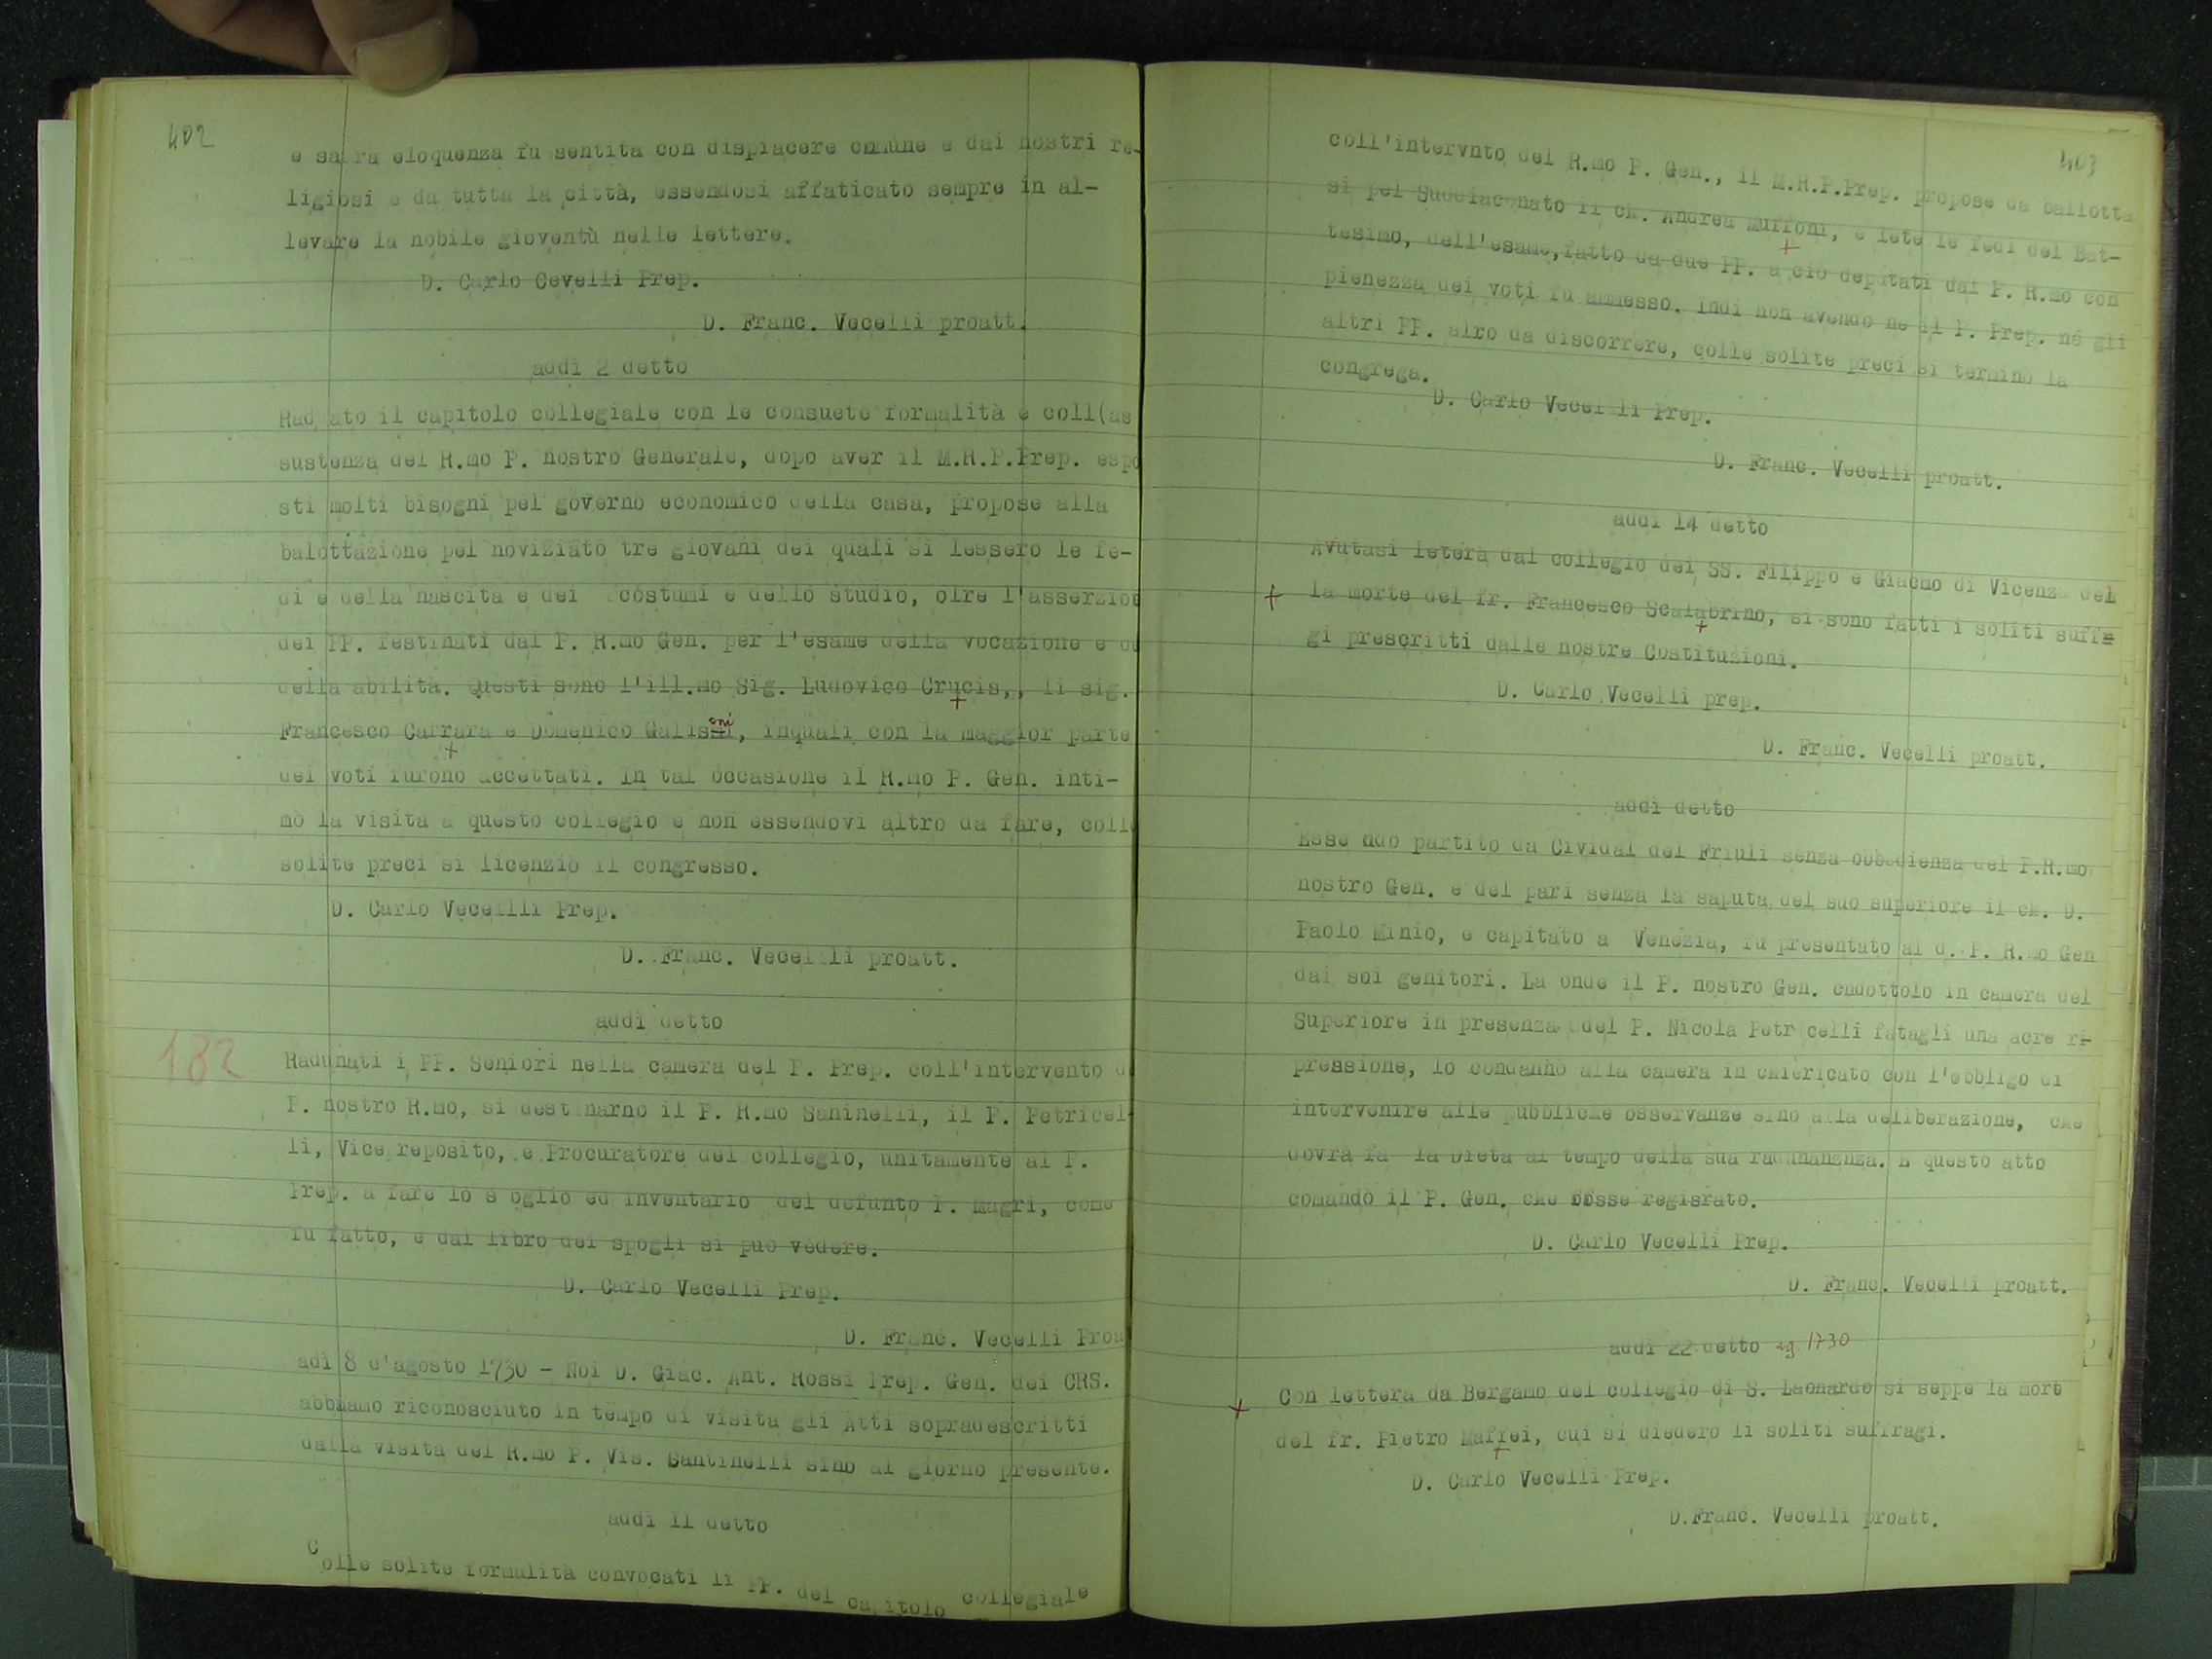 402
e sacra eloquenza fu sentita con dispiacere cmmune e dai nostri re-
ligiosi e da tutta la città, essendosi affaticato sempre in al-
levare la nobile gioventù nelle lettere.
D. Carlo Cevelli Prep.
D. Franc. Vecelli proatt.
addì 2 detto
Radunato il capitolo collegiale con le consuete formalità e coll(as
sustenza del R.mo P. nostro Generale, dopo aver il M.R.P.Prep. espo
sti molti bisogni pel governo economico della casa, propose alla
balottazione pel noviziato tre giovani dei quali si lessero le fe-
di e della nascita e dei costumi e dello studio, olre l'asserzion
dei PP. festinati dal P. R.mo Gen. per l'esame della vocazione e
della abilità. Questi sono l'ill.mo Sig. Ludovico Crucis,, li sig.
Francesco Carrara e Domenico Galisoni, inquali con la maggior parte
dei voti furono accettati. In tal occasione il R.mo P. Gen. inti-
mò la visita a questo collegio e non essendovi altro da fare, colle
solite preci si licenziò il congresso.
D. Carlo Vecellli Prep.
D. Franc. Vecellli proatt.
addì detto
182
Radunati i PP. Seniori nella camera del P. Prep. coll'intervento d
P. nostro R.mo, si destinarno il P. R.mo Saninelli, il P. Petricel
li, Vice reposito, e Procuratore del collegio, unitamente al P.
Prep. a fare lo s oglio ed inventario del defunto P. Magri, come
fu fatto, e dal libro dei spogli si può vedere.
D. Carlo Vecelli Prep.
D. Franc. Vecelli Proa
adì 8 d'agosto 1730 - Noi D. Giac. Ant. Rossi Prep. Gen. dei CRS.
abbiamo riconosciuto in tempo di visita gli Atti sopradescritti
dalla visita del R.mo P. Vis. Santinelli sino al giorno presente.
addì 11 detto
Colle solite formalità convocati li PP. del capitolo collegiale
403
coll'intervnto del R.mo P. Gen., il M.R.P.Prep. propose da ballotta
si pel Suddiaconato il ch. Andrea Muffoni, e lete le fedi del Bat-
tesimo, dell'esame,fatto da due PP. a ciò deputati dal P. R.mo con
pienezza dei voti fu ammesso. Indi non avendo né il P. Prep. né gli
altri PP. alro da discorrere, colle solite preci si terminò la
congrega.
D. Carlo Vecelli Prep.
D. Franc. Vecelli proatt.
addì 14 detto
Avutasi leterà dal collegio dei SS. Filippo e Giacmo di Vicenza del
+ la morte del fr. Francesco Scalabrino, si sono fatti i soliti suffr
gi prescritti dalle nostre Costituzioni.
D. Carlo Vecelli prep.
D. Franc. Vecelli proatt.
addì detto
Esse ndo partito da Cividal del Friuli senza obbedienza del P.R.mo
nostro Gen. e del pari senza la saputa del suo superiore il ch. D.
Paolo Minio, e capitato a Venezia, fu presentato al d. P. R.mo Gen
dai soi genitori. La onde il P. nostro Gen. cndottolo in camera del
Superiore in presenza del P. Nicola Petr celli fatagli una acre ri
pressione, lo condannò alla camera in chiericato con l'obbligo di
intervenire alle pubbliche osservanze sino alla deliberazione, che
dovrà fa la Dieta al tempo della sua radunananza. E questo atto
comandò il P. Gen. che fosse regisrato.
D. Carlo Vecelli Prep.
D. Franc. Vecelli proatt.
addì 22 detto ag 1730
+ Con lettera da Bergamo del collegio di S. Laonardo si seppe la morte
del fr. Pietro Maffei, cui si diedero li soliti suffragi.
D. Carlo Vecelli Prep.
D.Franc. Vecelli proatt.